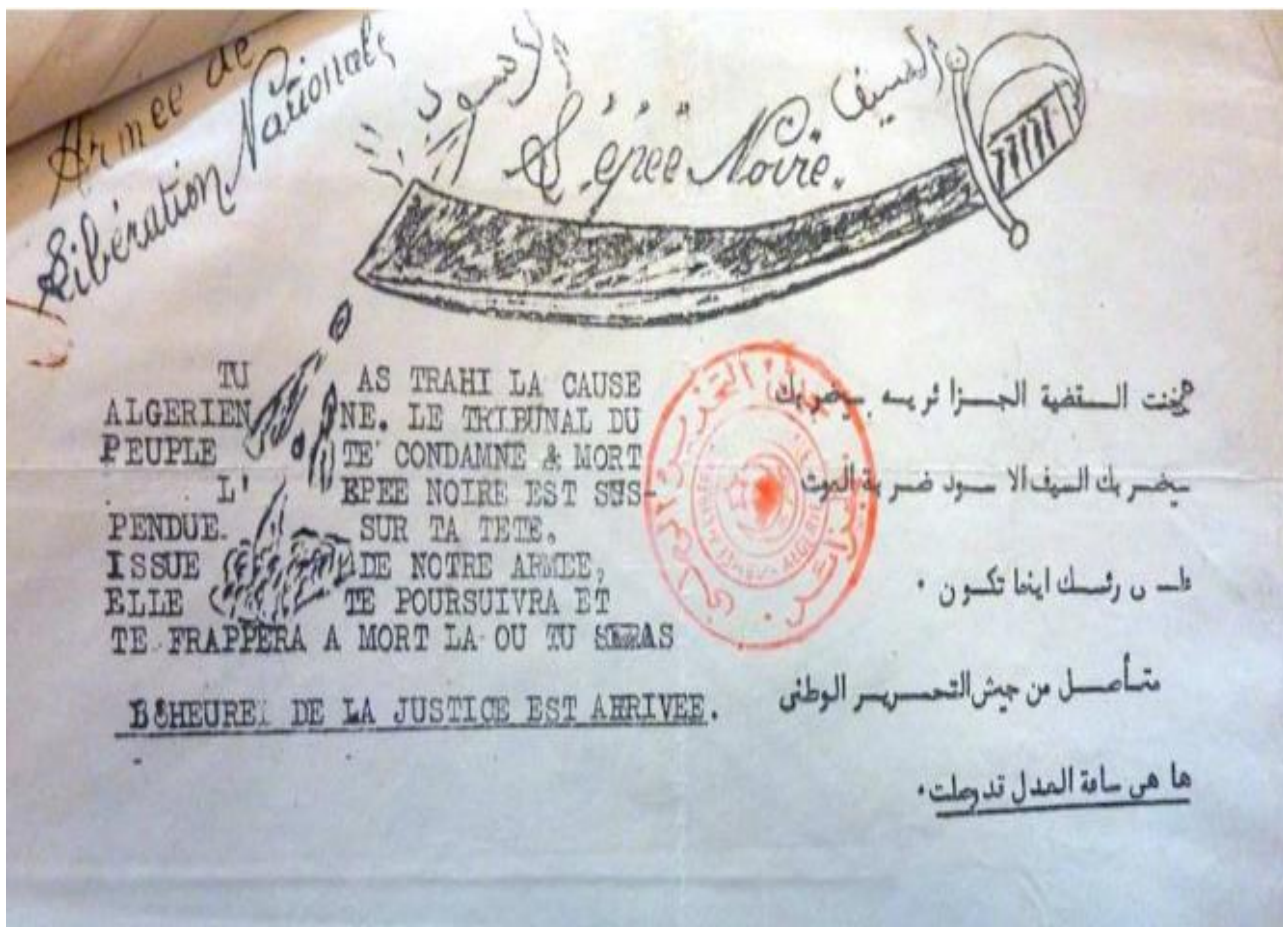 Armée de
Libération Nationale
السيف الاسود
L'épée Noire.
TU AS TRAHI LA CAUSE
ALGERIENNE. LE TRIBUNAL DU
PEUPLE TE CONDAMNE A MORT
L' EPEE NOIRE EST SUS-
PENDUE. SUR TA TETE.
ISSUE DE NOTRE ARMEE,
ELLE TE POURSUIVRA ET
TE FRAPPERA A MORT LA OU TU SERAS
HEURE DE LA JUSTICE EST ARRIVEE.
خنت القضية الجزائريه سيضربك
سيضربك السيف الاسود ضربة الموت
رئسك اينما تكون .
متأصل من جيش التحرير الوطنى
ها هى ساعة العدل قد وصلت.